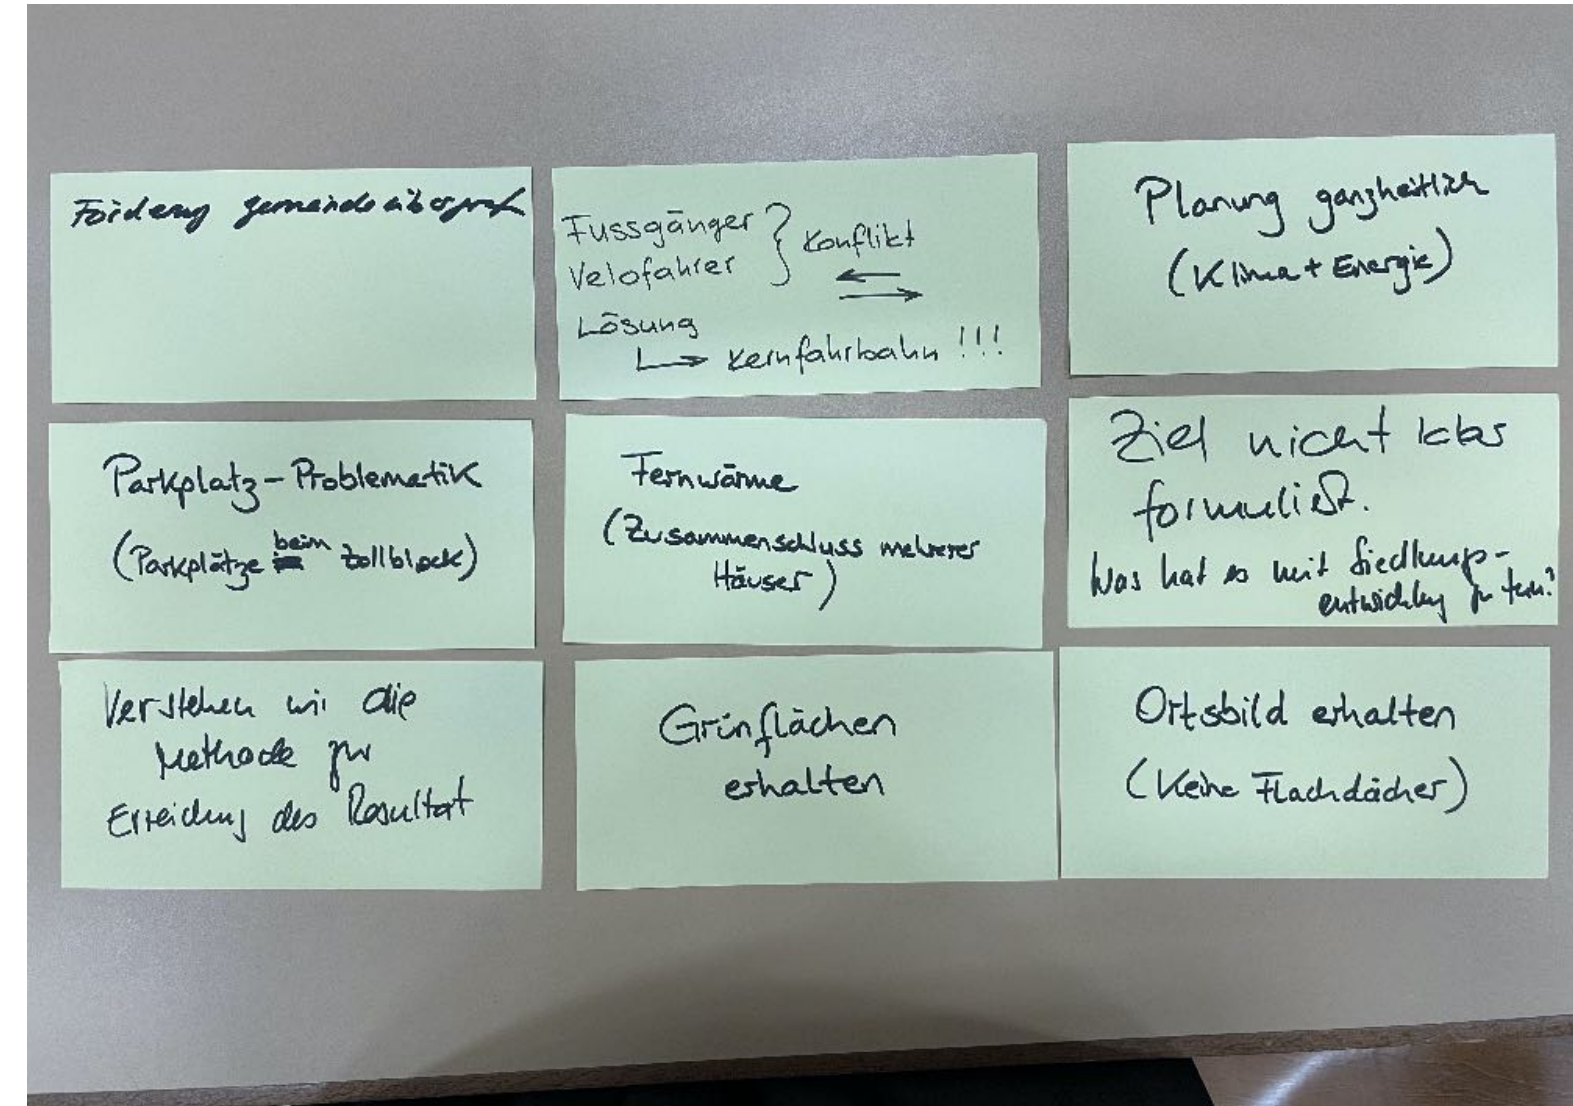 Förderung
Fussgänger } Konflikt
Velofahrer
Lösung
Kernfahrbahn !!!
Planung ganzheitlich
(Klima + Energie)
Parkplatz-Problematik
(Parkplätze beim Zollblock)
Fernwärme
(Zusammenschluss mehrerer
Häuser)
Ziel nicht klar
formuliert.
Was hat es mit Siedlungs-
entwicklung zu tun?
Verstehen wir die
Methode zur
Erreichung des Resultat
Grünflächen
erhalten
Ortsbild erhalten
(Keine Flachdächer)